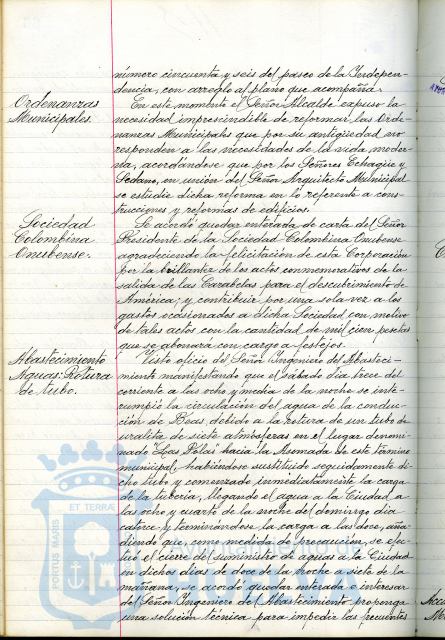 número cincuenta y seis del paseo de la Indepen-
dencia, con arreglo al plano que acompaña.
Ordenanzas
Municipales.
En este momento el Señor Alcalde expuso la
necesidad imprescindible de reformar las Orde-
nanzas Municipales que por su antigüedad no
responden a las necesidades de la vida moder-
na, acordándose que por los Señores Echagüe y
Sedano, en unión del Señor Arquitecto Municipal
se estudie dicha reforma en lo referente a cons-
trucciones y reformas de edificios.
Sociedad
Colombina
Onubense.
Se acordó quedar enterada de carta del Señor
Presidente de la Sociedad Colombina Onubense
agradeciendo la felicitación de esta Corporación
por la brillantez de los actos conmemorativos de la
salida de las Carabelas para el descubrimiento de
América; y contribuir por una sola vez a los
gastos ocasionados a dicha Sociedad con motivo
de tales actos con la cantidad de mil cien pesetas
que se abonará con cargo a festejos.
Abastecimiento
Aguas: Rotura
de tubo.
Visto oficio del Señor Ingeniero del Abasteci-
miento manifestando que el sábado día trece del
corriente a las ocho y media de la noche se inte-
rrumpió la circulación del agua de la conduc-
ción de Beas, debido a la rotura de un tubo de
uralita de siete atmósferas en el lugar denomi-
nado Las Polas hacia la Asomada de este término
municipal, habiéndose sustituido seguidamente di-
cho tubo y comenzado inmediatamente la carga
de la tubería, llegando el agua a la Ciudad a
las ocho y cuarto de la noche del domingo día
catorce y terminándose la carga a las doce, aña-
diendo que, como medida de precaución, se efec-
tuó el cierre del suministro de aguas a la Ciudad
en dichos días de doce de la noche a siete de la
mañana, se acordó quedar enterada e interesar
del Señor Ingeniero del Abastecimiento proponga
una solución técnica para impedir las frecuentes
PORTUS MARIS ET TERRAE